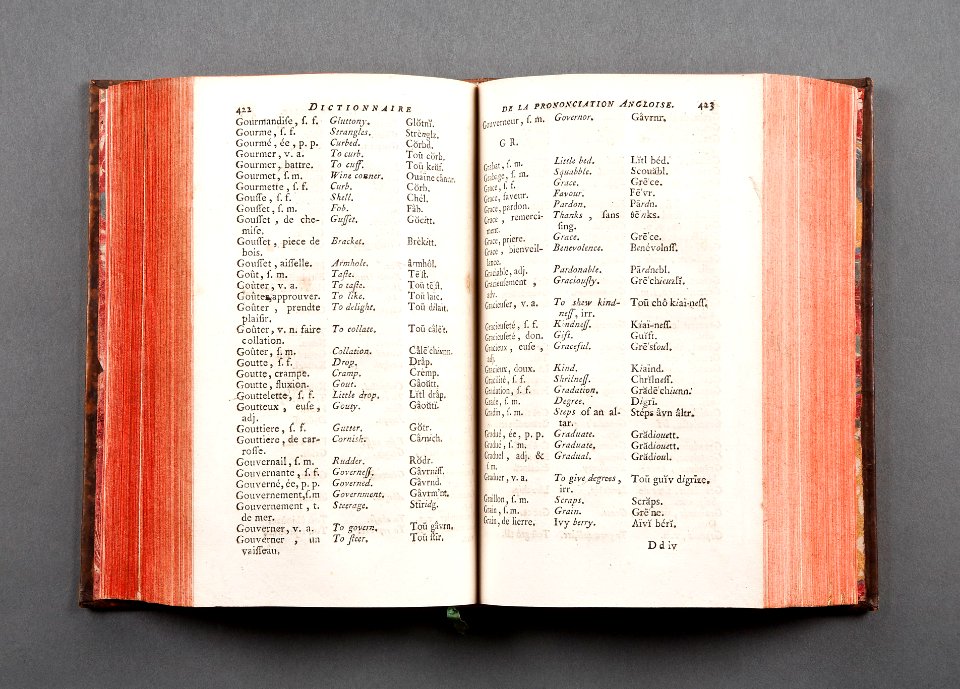 422 DICTIONNAIRE
Gourmandise, ſ. f. Gluttony. Glötnĭ.
Gourme, ſ. f. Strangles. Strěnglz.
Gourmé, ée, p. p. Curbed. Cörbd.
Gourmer, v. a. To curb. Toŭ cörb.
Gourmer, battre. To cuff. Toŭ
Gourmet, ſ. m. Wine conner.
Gourmette, ſ. f. Curb. Cörb.
Gouſſe, ſ. f. Shell. Chél.
Gouſſet, ſ. m. Fob. Fâb.
Gouſſet, de che- Guſſet. Göcitt.
miſe.
Gouſſet, piece de Bracket. Brèkitt.
bois.
Gouſſet, aiſſelle. Armhole. ârmhôl.
Goût, ſ. m. Taſte. Tēſt.
Goûter, v. a. To taſte. Toŭ tēſt.
Goûter, approuver. To like. Toŭ laïc.
Goûter, prendte To delight. Toŭ dilaït.
plaiſir.
Goûter, v. n. faire To collate. Toŭ câlēt.
collation.
Goûter, ſ. m. Collation.
Goutte, ſ. f. Drop. Drâp.
Goutte, crampe. Cramp. Crèmp.
Goutte, fluxion. Gout. Gâoŭtt.
Gouttelette, ſ. f. Little drop. Lĭtl drâp.
Goutteux, euſe, Gouty. Gâoŭtĭ.
adj.
Gouttiere, ſ. f. Gutter. Götr.
Gouttiere, de car- Cornish. Cârnich.
roſſe.
Gouvernail, ſ. m. Rudder. Rŏdr.
Gouvernante, ſ. f. Governeſſ. Gâvrniſſ.
Gouverné, ée, p. p. Governed. Gâvrnd.
Gouvernement, ſ.m Government. Gâvrm'nt.
Gouvernement, t. Steerage. Stiridg.
de mer.
Gouverner, v. a. To govern. Toŭ gâvrn.
Gouverner, un To ſteer. Toŭ ſtir.
vaiſſeau.
DE LA PRONONCIATION ANGLOISE. 423
Gouverneur, ſ. m. Governor. Gâvrnr.
G R.
Grabat, ſ. m. Little bed. Lĭtl béd.
Grabuge, ſ. m. Squabble. Scouâbl.
Grace, ſ. f. Grace. Grē'ce.
Grace, faveur. Favour. Fē'vr.
Grace, pardon. Pardon. Pârdn.
Grace, remerci- Thanks, ſans
ment. ſing.
Grace, priere. Grace. Grē'ce.
Grace, bienveil- Benevolence. Benévolnſſ.
lance.
Graciable, adj. Pardonable. Pârdnebl.
Gracieuſement, Graciouſly.
adv.
Gracieuſer, v. a. To shew kind- Toŭ chô kiai-neſſ.
neſſ, irr.
Gracieuſeté, ſ. f. Kindneſſ. Kiai-neſſ.
Gracieuſeté, don. Gift. Guiſt.
Gracieux, euſe, Graceful. Grē'sſoul.
adj.
Gracieux, doux. Kind. Kiaind.
Gracilité, ſ. f. Shrilneſſ. Chrilneſſ.
Gradation, ſ. f. Gradation.
Grade, ſ. m. Degree. Digrĭ.
Gradin, ſ. m. Steps of an al- Stéps âvn âltr.
tar.
Gradué, ée, p. p. Graduate. Grădiouett.
Gradué, ſ. m. Graduate. Grădiouett.
Graduel, adj. & Gradual. Grădioul.
ſ m.
Graduer, v. a. To give degrees, Toŭ guĭv dĭgrĭze.
irr.
Graillon, ſ. m. Scraps. Scrăps.
Grain, ſ. m. Grain. Grē'ne.
Grain, de lierre. Ivy berry. Aïvĭ bérĭ.
D d iv